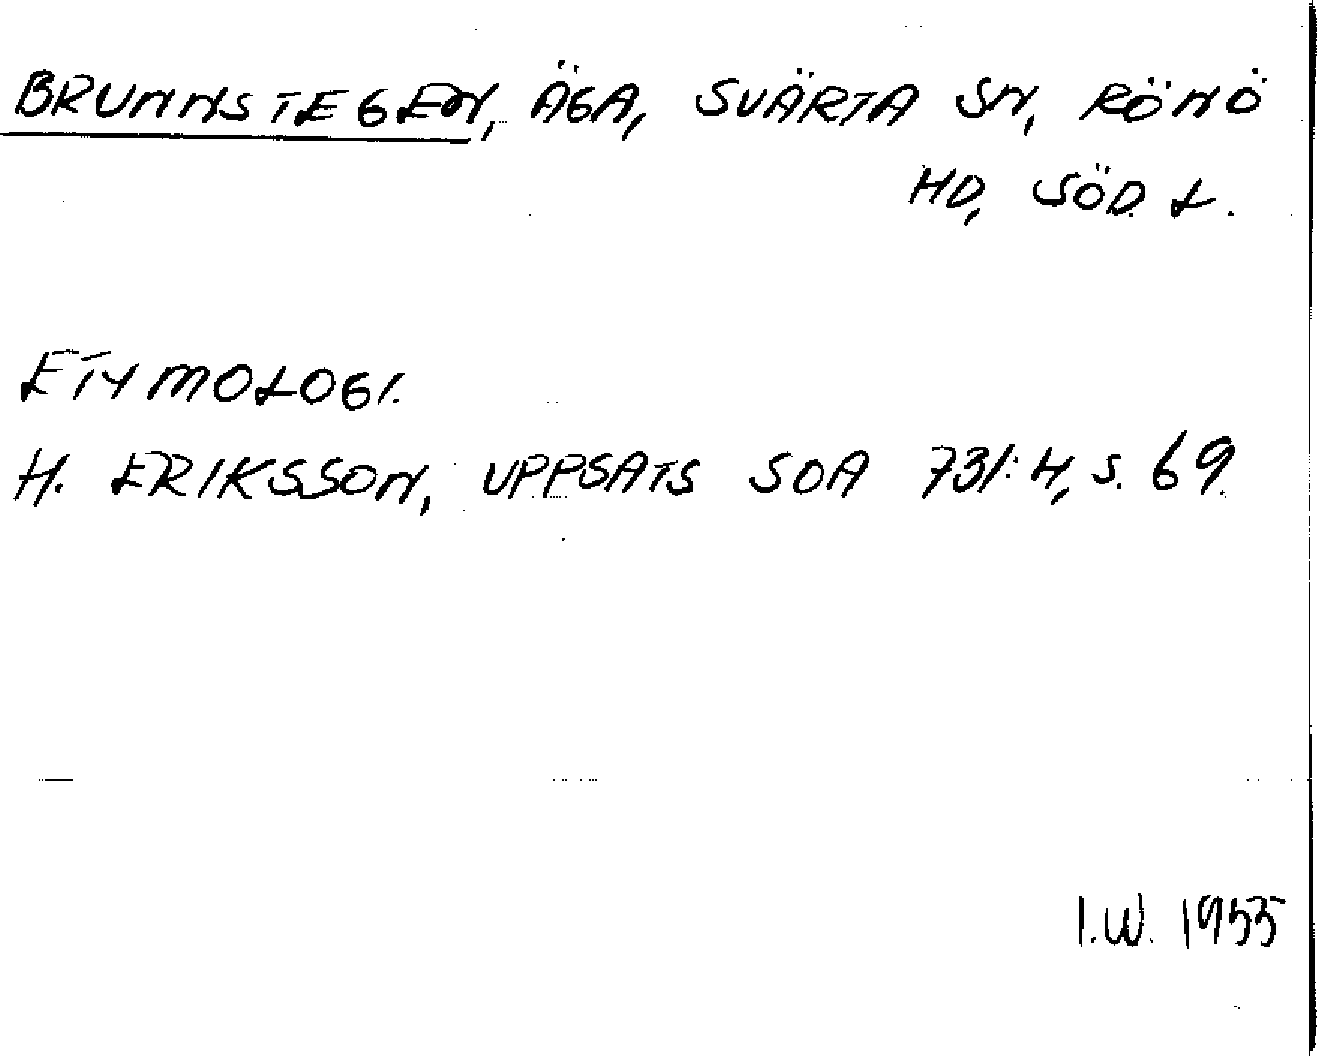 BRUNNSTEGEN, ÄGA, SVÄRTA SN, RÖNÖ
HD, SÖD. L.
ETYMOLOGI.
H. ERIKSSON, UPPSATS SOA 731:H, S. 69.
I.W. 1955